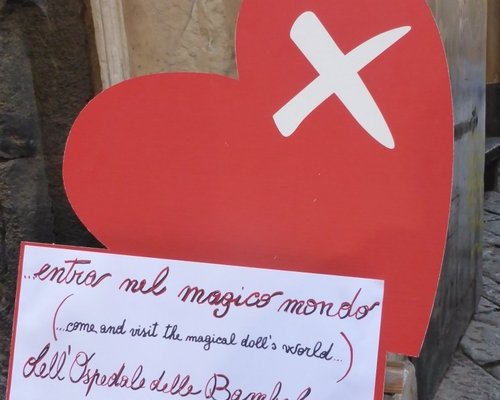 ...entra nel magico mondo
(...come and visit the magical doll's world...)
dell'Ospedale delle